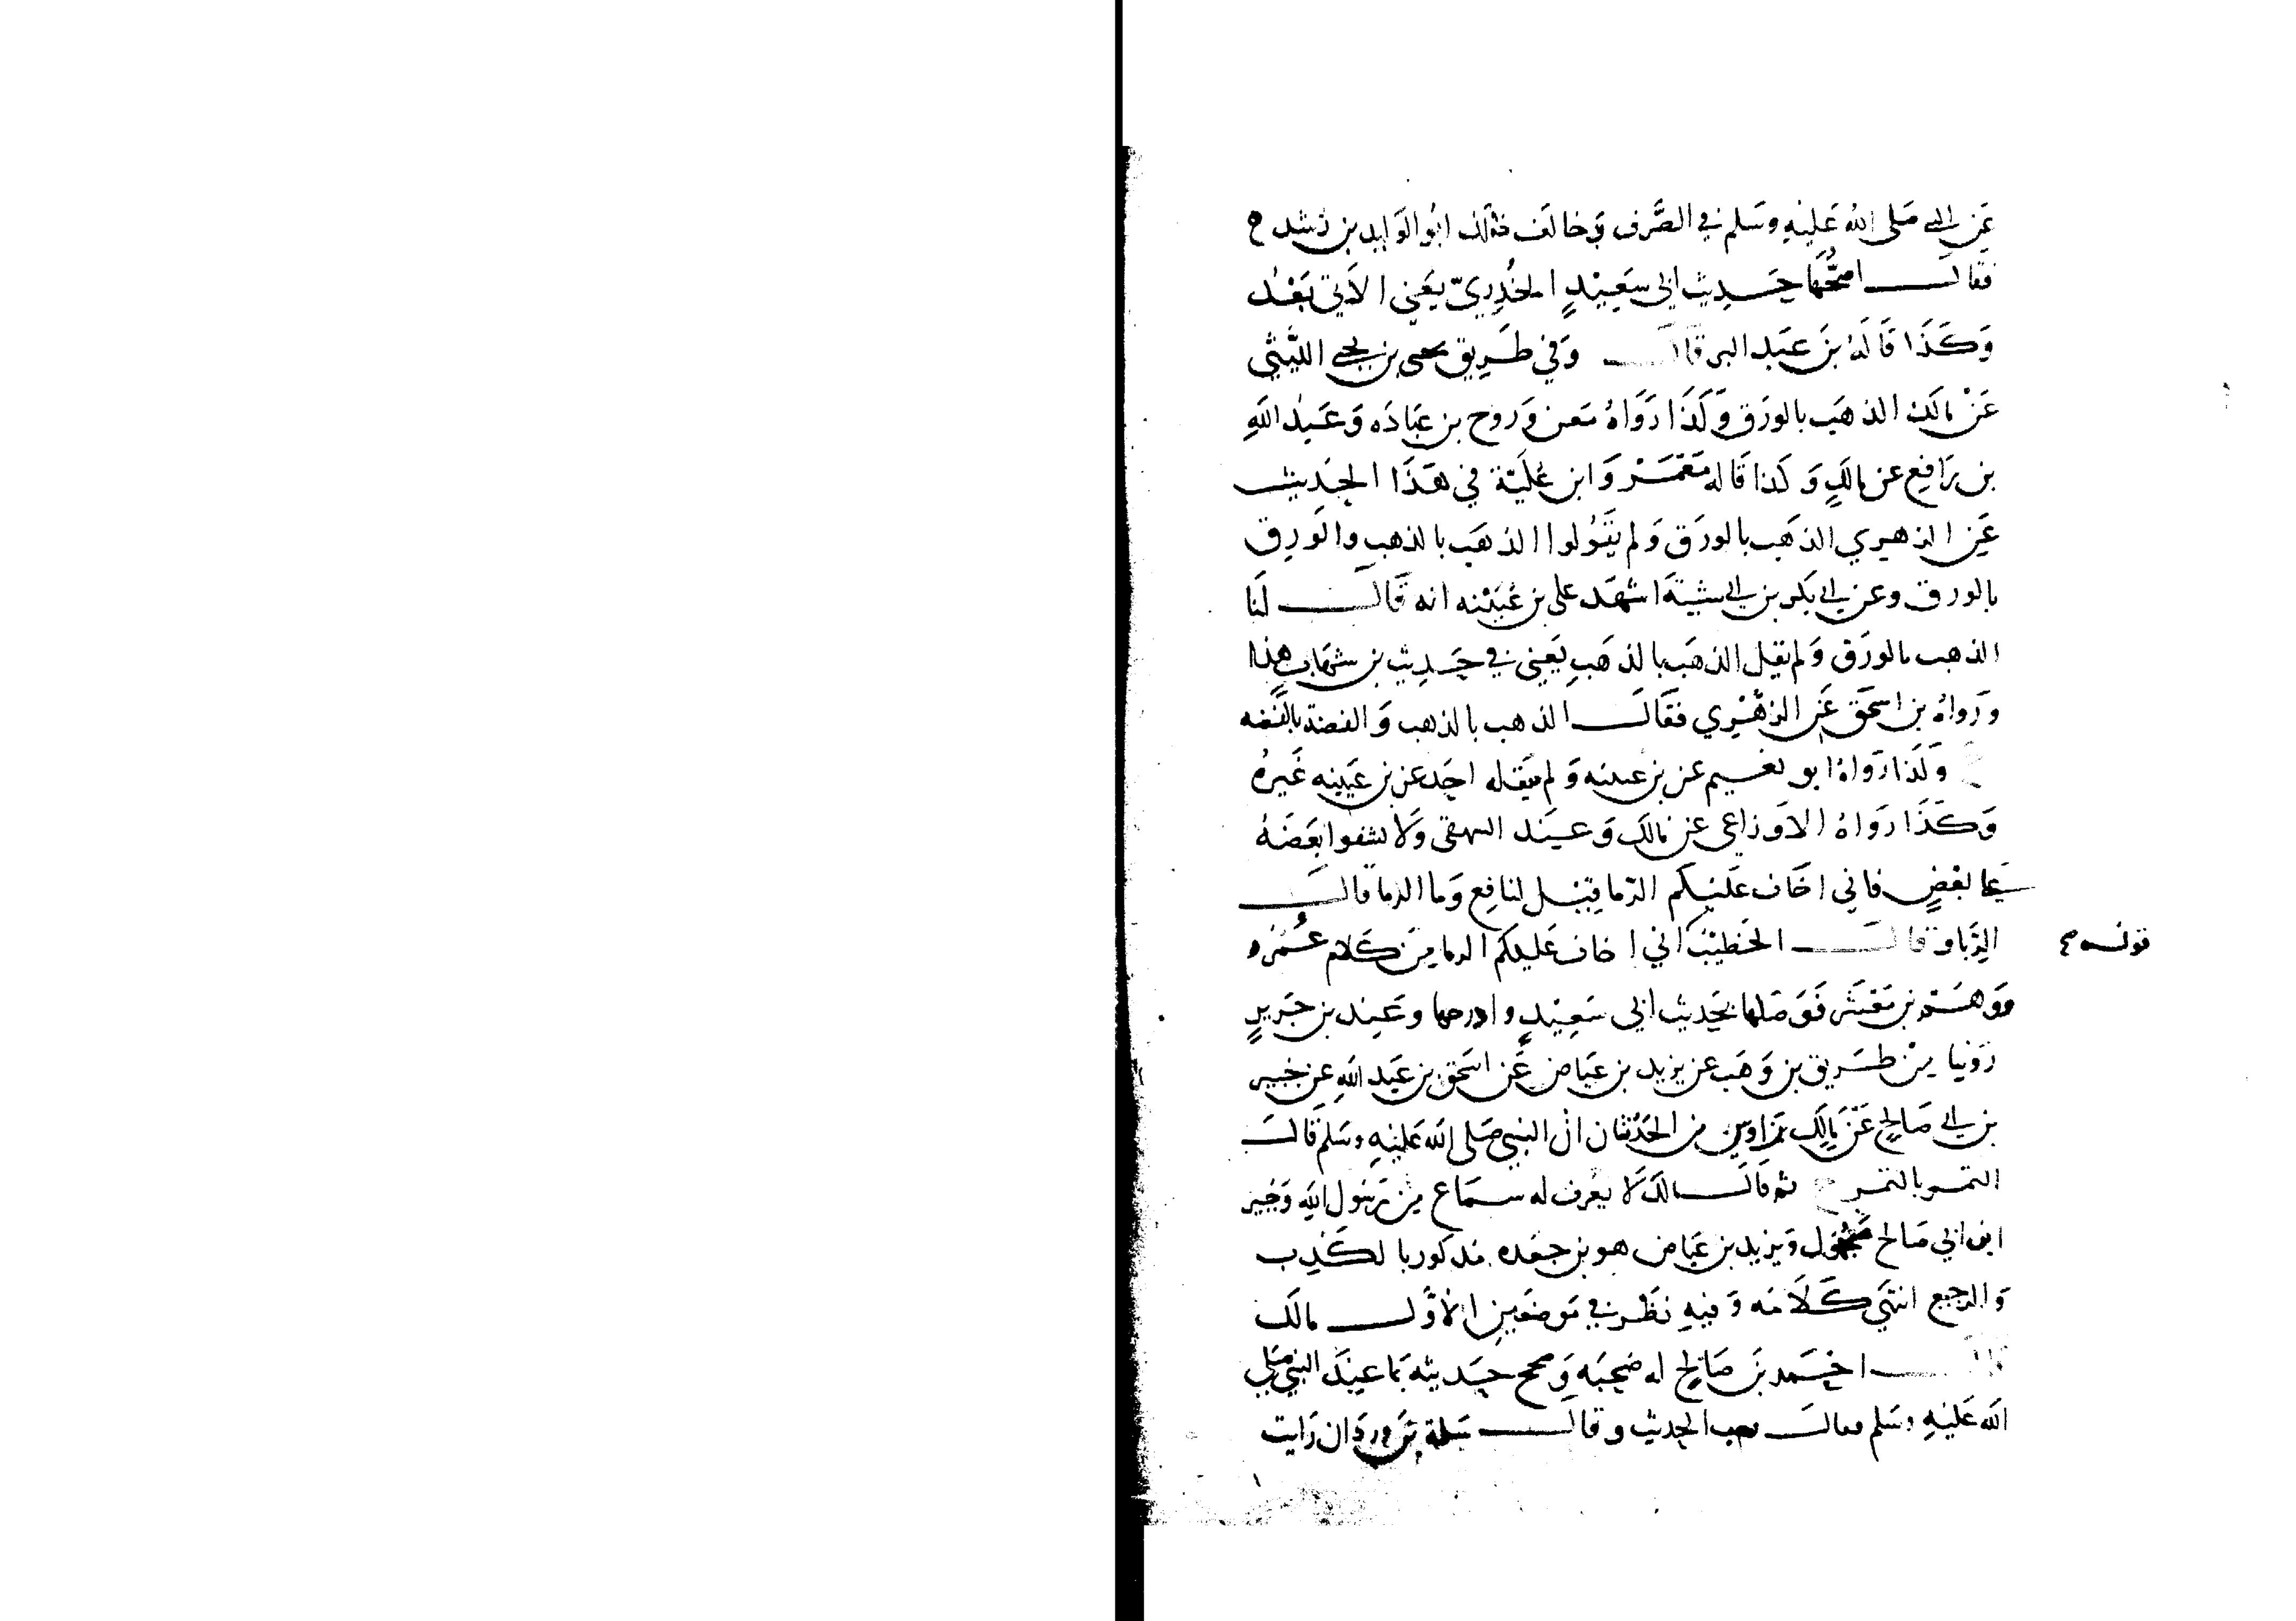 عَن النبي صَلى اللهُ عَليْهِ وسَلم في الصَّرف وَخالَف ذلك ابُو الوَليد بن رُشد
فقالـــ اصَحُّهَا حَديث ابي سَعيْدٍ الخُدرِيّ يعَني الاَتي بَعْد
وَكَذَا قَالهُ بنَ عَبد البر قالـــ وَفي طَريق يحيى بن يحيى اللّيْثي
عَنْ مالك الذهَب بالورَق وَكَذَا رَوَاهُ مَعن وَروح بن عبَادَه وَعَبد اللهِ
بن رَافِع عن مالكٍ وَكذا قَاله مَعْمَر وَابن عُليّة في هَذَا الحَديث
عَن الزهري الذهَب بالورَق وَلم يَقُولوا الذهَب بالذهبِ والوَرِق
بالورق وعن ابي بَكر بن ابي شيبَة اشهَد على بن عُيَيْنه انه قَالـــ لَنا
الذهب بالورَق وَلم يقل الذهَب بالذهَبِ يَعني في حَديث بن شهَاب هذا
ورَواهُ بن اسحَق عَن الزهْري فقَالـــ الذهب بالذهب وَالفضة بالفضه
وَكَذا رَوَاهُ ابو نعيم عن بن عيينه وَلم يقله احَد عن بن عيَينه غَيرُه
وَكَذَا رَوَاهُ الاَوزاعي عن مالك وَعند البيهقى وَلا تشفوا بعَضَهُ
على بعْضٍ فاني اخَاف عَليكم الرّما قيْل لنافِع وَما الرما قالـــ
الرِّبا وقالـــ الخطيْب اني اخاف عَليكم الرما مِن كَلام عُمَر
قوله صح
وَوَهم بن مَعْشَر فَوَصَلها بحَديث ابي سَعيْدٍ وادرجها وعَند بن جَريرٍ
رَوَيْنا مِنْ طَريق بن وَهَب عن يزيد بن عيَاض عَن اسحَق بن عَبد اللهِ عن جبير
بن ابي صَالح عَن مَالِك بن اوس بن الحَدَثان ان النبي صَلى الله عَليْهِ وسَلم قَالـــ
التمر بالتمر ثم قَالـــ مالك لا يعُرف له سَمَاع مِن رَسُول الله وَجبير
ابن ابي صَالح مَجْهُول وَيزيد بن عيَاض هو بن جعده مذكور بالكَذِب
وَالوَضع انتهَى كَلاَمَه وَفيهِ نظَر في مَوضعَين الاوَّلـــ مالك
قالـــ احمَد بن صَالح له صُحبَه وَصحح حَديثه بما عند النبي صَلى
الله عَليْهِ وسَلم فقالـــ الحديث وقالـــ سَلمة بن وردَان رَايت